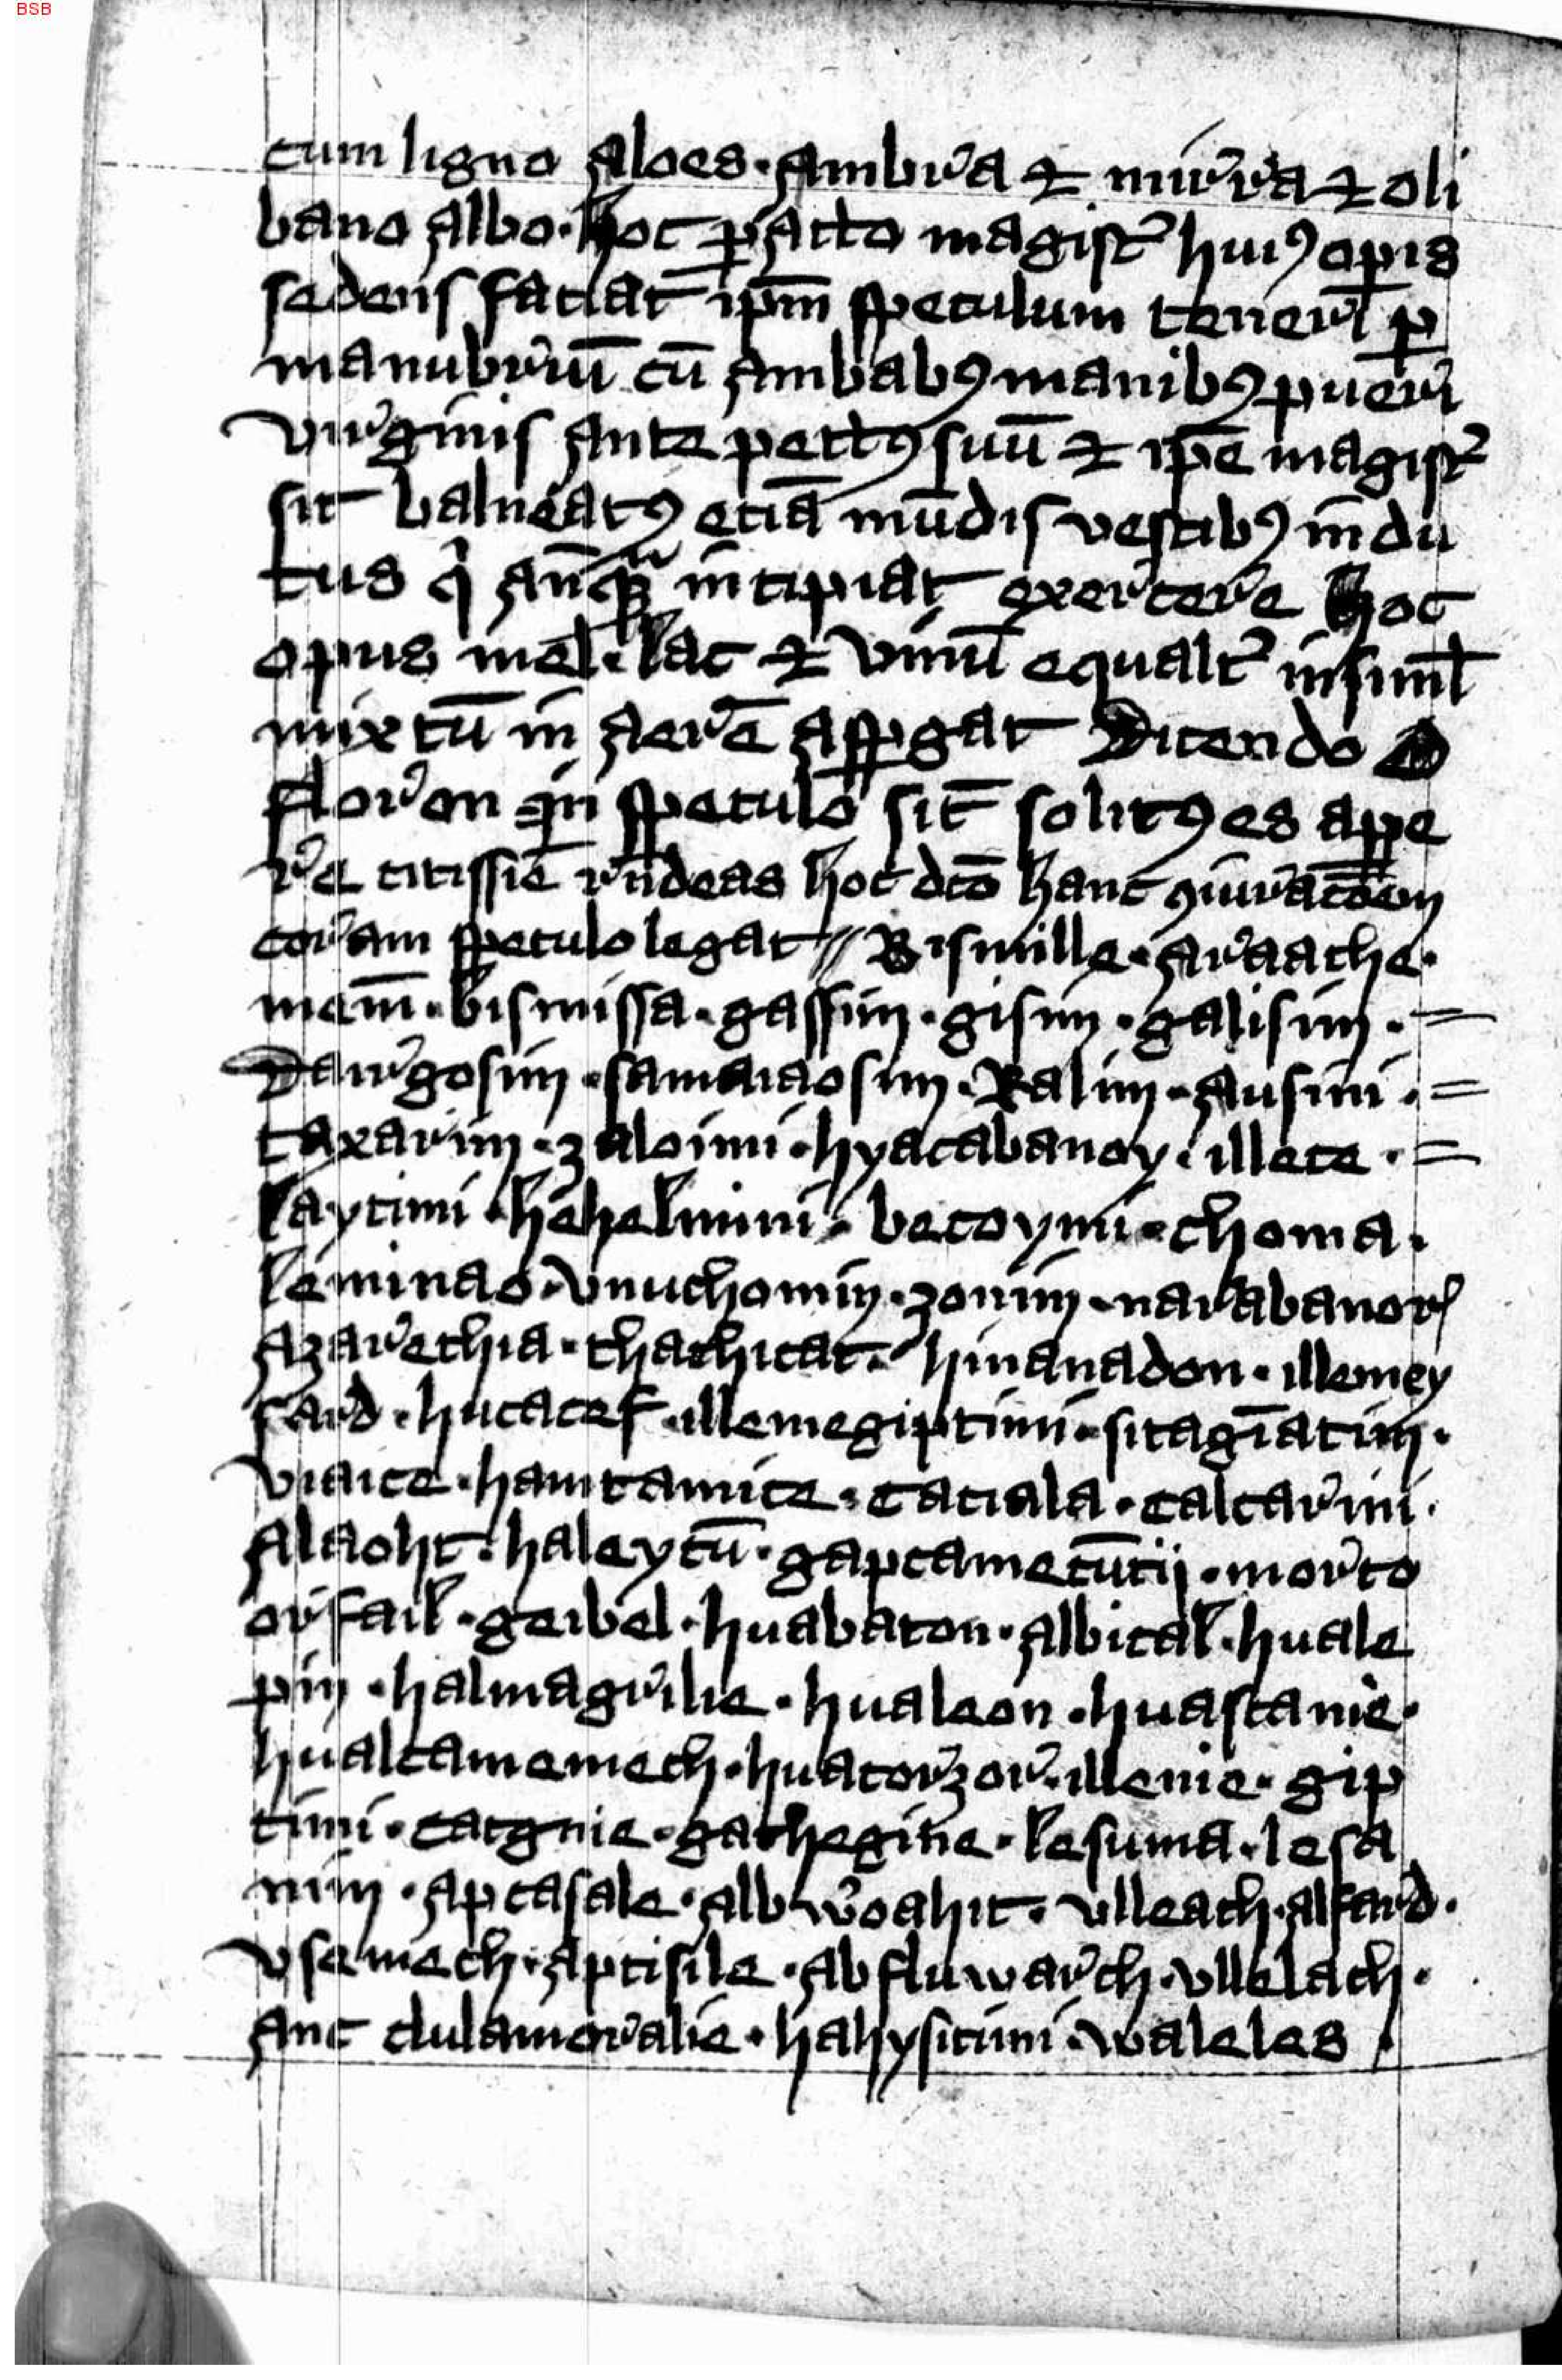 BSB
cum ligno aloes · Ambra ⁊ mirra ⁊ oli
bano albo · hoc ꝑacto magistͬ huiꝰ opͥs
sedens faciat ip̄m speculum teneri ꝑ
manubriū cū ambabꝰ manibꝰ pueri
virginis ante pectꝰ suū ⁊ ip̄e magistͬ
sit balneatꝰ etiā mūdis vestibꝰ indu
tus qͥ anq̄ͣ incipiat exercere hoc
opus mel · lac ⁊ vinū equaltͬ insiml̄
mixtū in aerē asꝑgat Dicendo
floron qͥ in speculo sic̄ solitꝰ es appe
re citissiē rn̄deas hoc dc̄o hanc ꝯiurac̄oem
coram speculo legat // Bismille · araache ·
mem̄ · bismissa · gassim · gisim · galisim · =
Dargosim · samaiaosim · Ralim · ausini · =
taxarim · zaloimi · hyacabanoy · illete · =
laytimi · hehelmini · betoymi · thoma ·
leminao · vnuthomin · zonim · narabanor
azarethia · thathitat · hinanadon · illemey
sard · hutatef · illemegiptimi · sitagīatim ·
viaice · hamtamice · catiala · calcarini ·
alaoht · haleytū · gaptametūtij · morto
orfail · geibel · huabaton · albital · huale
pin · halmagrilie · hualeon · huastanie ·
hualtamemech · huatorzor · illeme · gip
timi · catgnie · gathegine · lesuma · lesa
nim · aptasale · albwroahit · vlleach · alfard ·
vsemech · aptisile · abfluwarch · vllelach ·
anc dulamoralie · hahysitimi · waleles